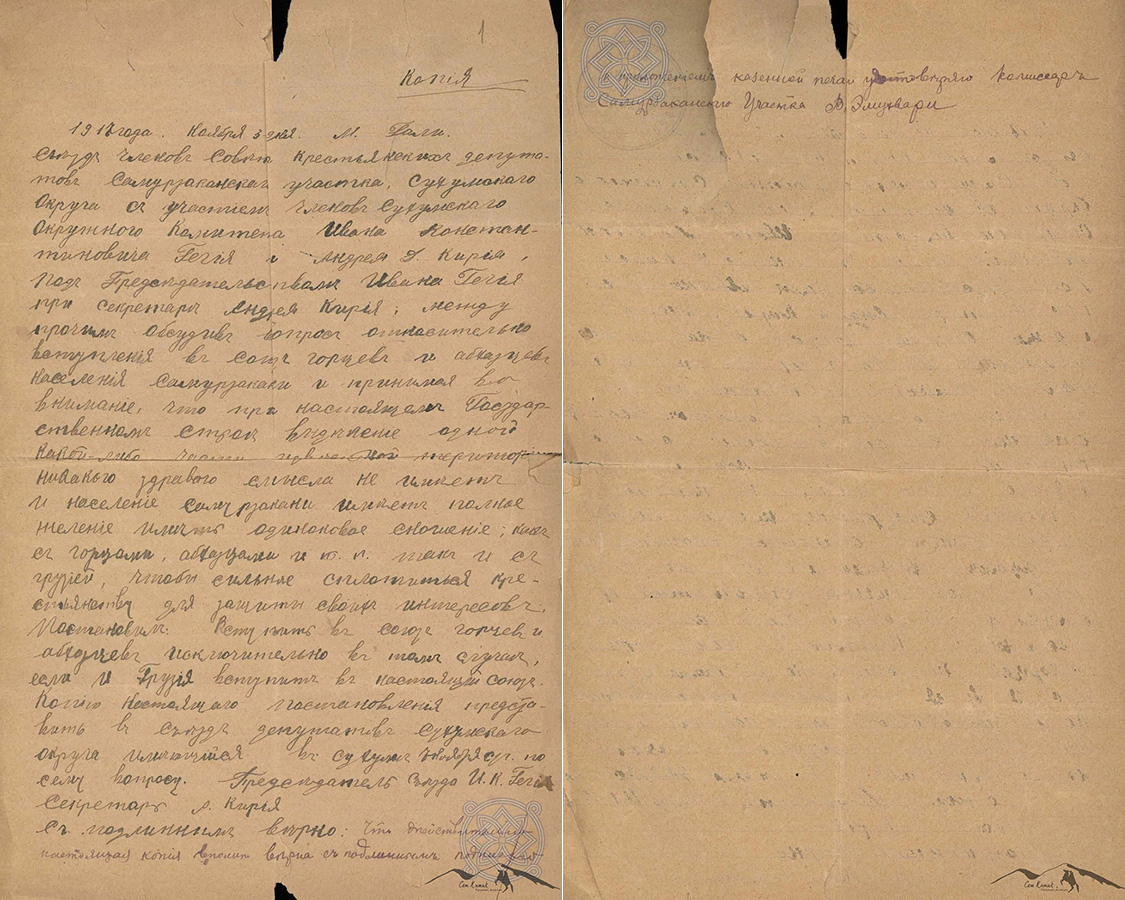 1
Копія
1917 года. Ноября 3 дня. М. Гали.
Съѣздъ членовъ Совѣта крестьянскихъ депута-
товъ Самурзаканскаго участка, Сухумскаго
Округа съ участіемъ членовъ Сухумскаго
Окружного Комитета Ивана Констан-
тиновича Гегія и Андрея Д. Кирія,
подъ Предсѣдательствомъ Ивана Гегія
при секретарѣ Андрея Кирія, между
прочимъ обсудивъ вопросъ относительно
вступленія въ союзъ горцевъ и абхазцевъ
населенія Самурзакани и принимая во
вниманіе, что при настоящемъ Государ-
ственномъ строѣ выдѣленіе одной
какой-либо части
никакого здраваго смысла не имѣетъ
и населеніе Самурзакани имѣетъ полное
желеніе имѣть одинаковое сношеніе, какъ
съ горцами, абхазцами и т. п. такъ и съ
грузіей, чтобы сильнѣе сплотиться кре-
стьянству для защиты своихъ интересовъ.
Постановили: Вступить въ союзъ горцевъ и
абхазцевъ исключительно въ томъ случаѣ,
если и Грузія вступитъ въ настоящій союзъ.
Копію настоящаго постановленія предста-
вить въ съѣздъ депутатовъ Сухумскаго
округа имѣющійся въ Сухумѣ ноября с/г. по
сему вопросу. Предсѣдатель Съѣзда И. К. Гегія
Секретарь А. Кирія
Съ подлиннымъ вѣрно: Что дѣйствительно
настоящая копія вполнѣ вѣрна съ подлиннымъ
приложеніемъ казенной печати удостовѣряю Комиссаръ
Самурзаканскаго Участка В. Эмухвари
Сем Кунак
Сем Кунак